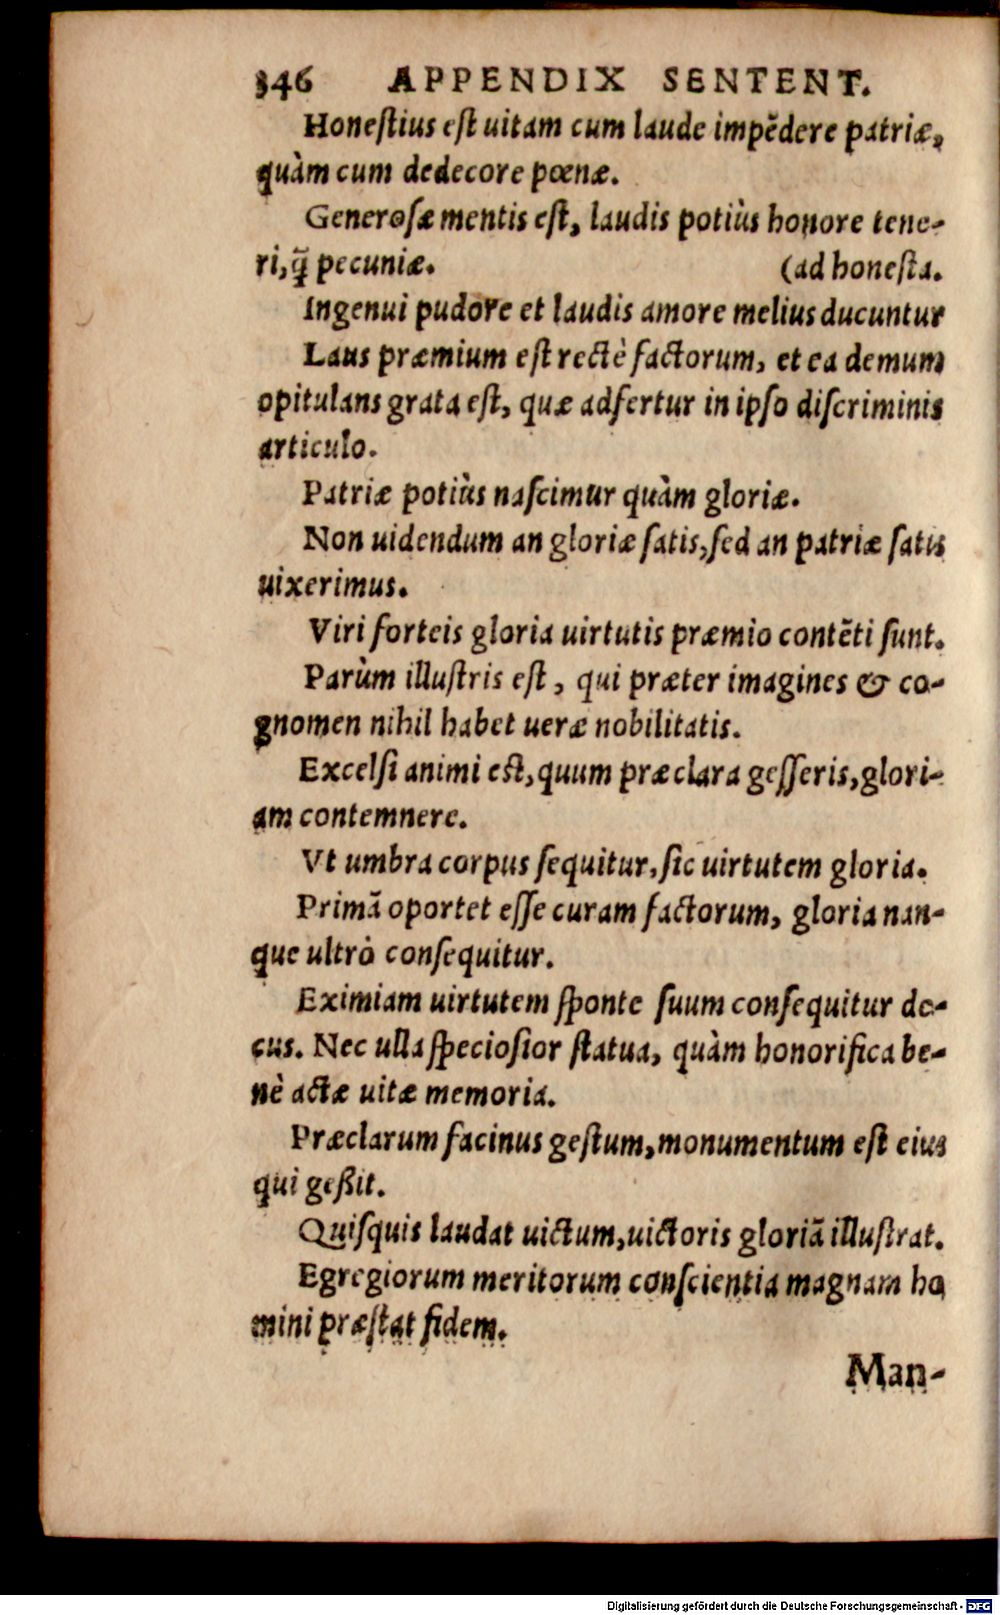 346 APPENDIX SENTENT.
Honeſtius eſt uitam cum laude impẽdere patriæ,
quàm cum dedecore pœnæ.
Generoſæ mentis eſt, laudis potiùs honore tene-
ri, q̃ pecuniæ. (ad honeſta.
Ingenui pudore et laudis amore melius ducuntur
Laus præmium eſt rectè factorum, et ea demum
opitulans grata eſt, quæ adfertur in ipſo diſcriminis
articulo.
Patriæ potiùs naſcimur quàm gloriæ.
Non uidendum an gloriæ ſatis, ſed an patriæ ſatis
uixerimus.
Viri forteis gloria uirtutis præmio contẽti ſunt.
Parùm illuſtris eſt, qui præter imagines & co-
gnomen nihil habet ueræ nobilitatis.
Excelſi animi eſt, quum præclara geſſeris, glori-
am contemnere.
Vt umbra corpus ſequitur, ſic uirtutem gloria.
Primã oportet eſſe curam factorum, gloria nan-
que ultrò conſequitur.
Eximiam uirtutem ſponte ſuum conſequitur de-
cus. Nec ulla ſpecioſior ſtatua, quàm honorifica be-
nè actæ uitæ memoria.
Præclarum facinus geſtum, monumentum eſt eius
qui geßit.
Quiſquis laudat uictum, uictoris gloriã illuſtrat.
Egregiorum meritorum conſcientia magnam ho
mini præſtat fidem.
Man-
Digitalisierung gefördert durch die Deutsche Forschungsgemeinschaft - DFG